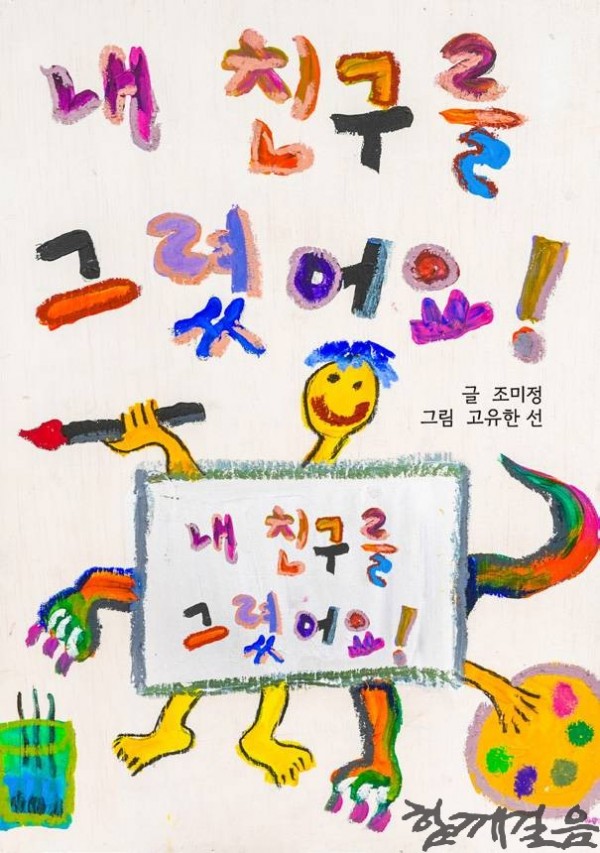 내 친구를
그렸어요!
글 조미정
그림 고유한 선
내 친구를
그렸어요!
함께걸음